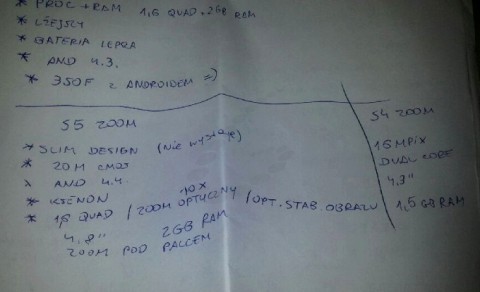 * PROC + RAM 1,6 QUAD + 2GB RAM
* LŻEJSZY
* BATERIA LEPSZA
* AND 4.3.
* 350F z ANDROIDEM =)
S5 ZOOM
* SLIM DESIGN (Nie wystaje)
* 20M CMOS
* AND 4.4.
* KSENON
* 1,6 QUAD / 10X ZOOM OPTYCZNY / OPT. STAB. OBRAZU
4,8" 2GB RAM
ZOOM POD PALCEM
S4 ZOOM
16 MPIX
DUAL CORE
4,3"
1,5 GB RAM